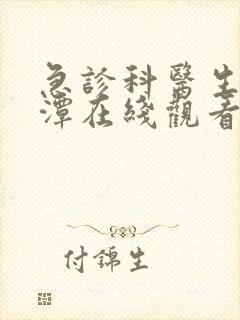 急診科醫生
潭在綫觀看
付錦生